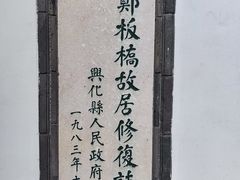 鄭板橋故居修復誌
興化縣人民政府
一九八三年